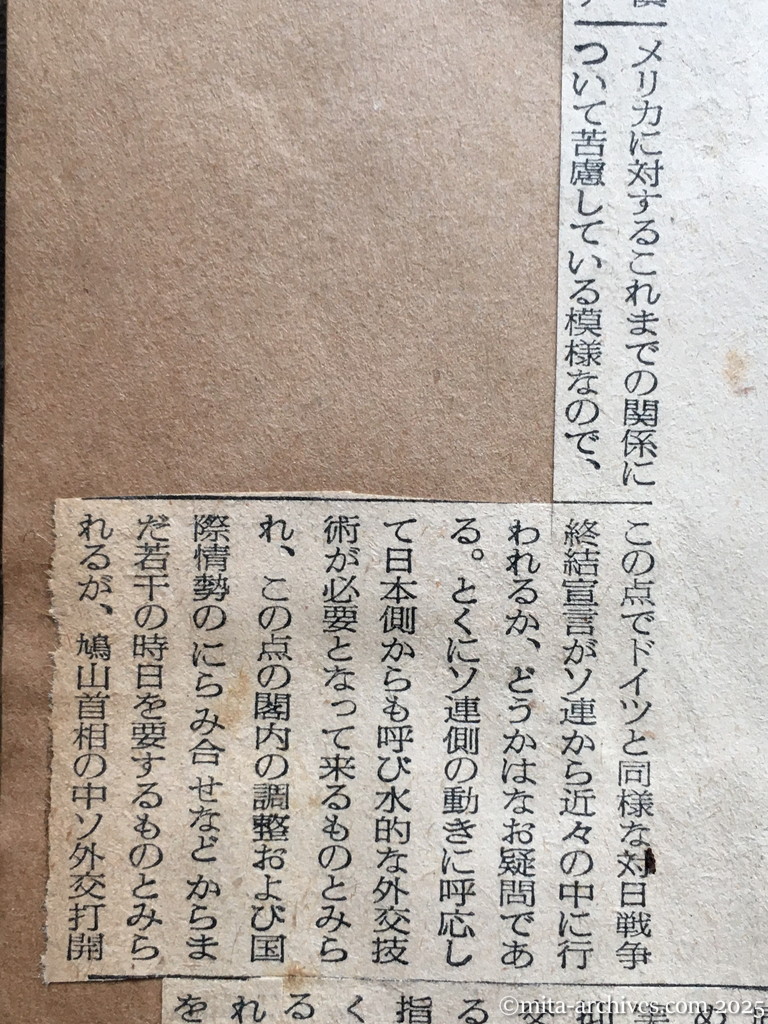 メリカに対するこれまでの関係に
ついて苦慮している模様なので、
この点でドイツと同様な対日戦争
終結宣言がソ連から近々の中に行
われるか、どうかはなお疑問であ
る。とくにソ連側の動きに呼応し
て日本側からも呼び水的な外交技
術が必要となって来るものとみら
れ、この点の閣内の調整および国
際情勢のにらみ合せなどからま
だ若干の時日を要するものとみら
れるが、鳩山首相の中ソ外交打開
る指くれるれを
©mita-archives.com 2025